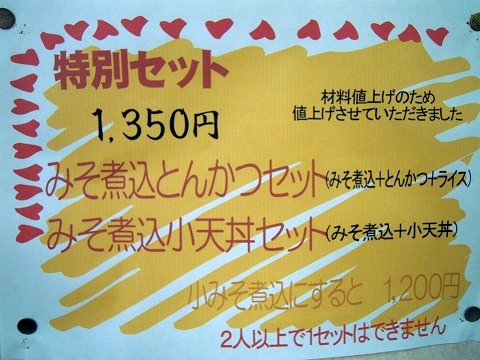 特別セット
1,350円
材料値上げのため
値上げさせていただきました
みそ煮込とんかつセット(みそ煮込+とんかつ+ライス)
みそ煮込小天丼セット(みそ煮込+小天丼)
小みそ煮込にすると 1,200円
2人以上で1セットはできません